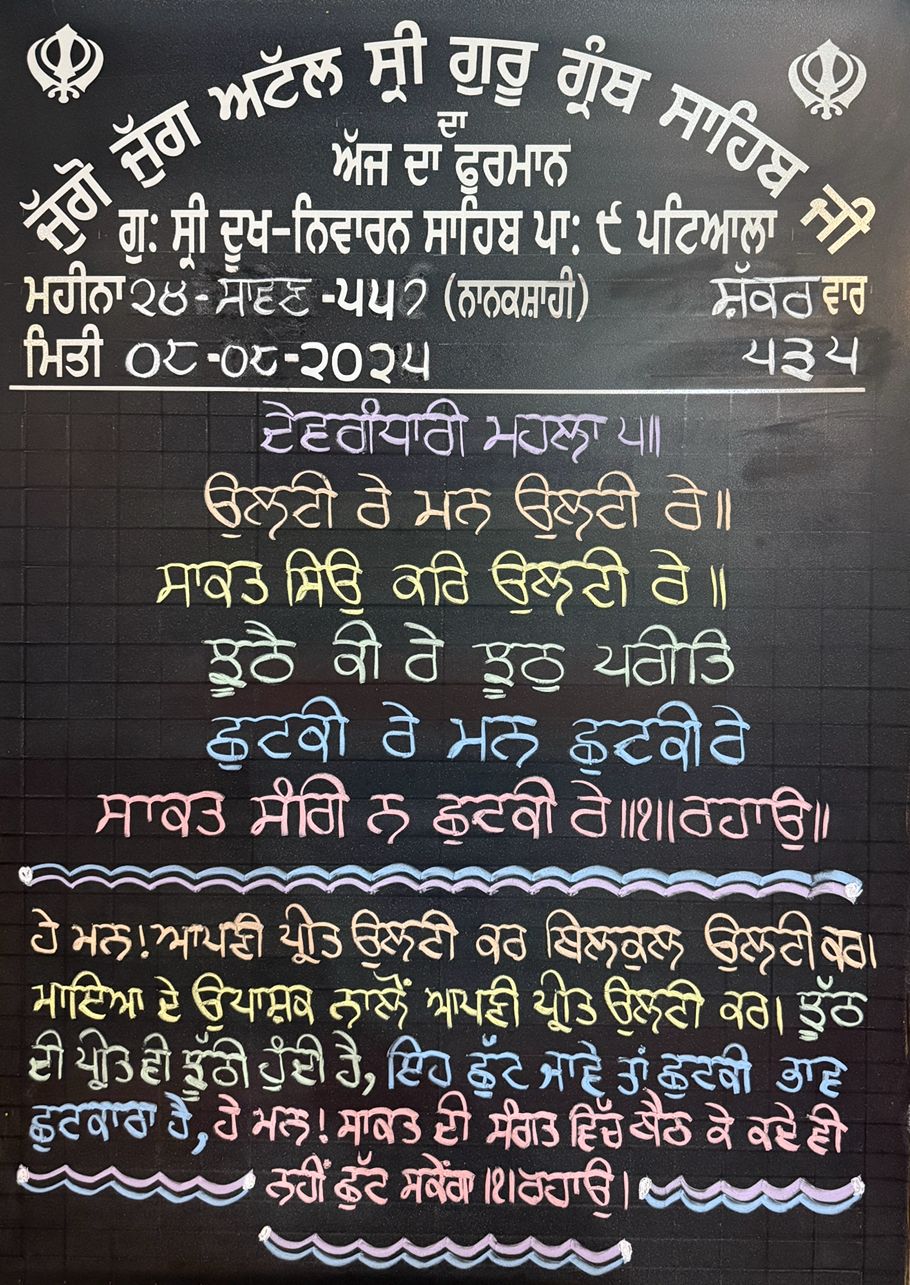 ਜੁੱਗੋ ਜੁੱਗ ਅਟੱਲ ਸ੍ਰੀ ਗੁਰੂ ਗ੍ਰੰਥ ਸਾਹਿਬ ਜੀ
ਦਾ
ਅੱਜ ਦਾ ਫੁਰਮਾਨ
ਗੁ: ਸ੍ਰੀ ਦੂਖ-ਨਿਵਾਰਨ ਸਾਹਿਬ ਪਾ: ੯ ਪਟਿਆਲਾ
ਮਹੀਨਾ ੨੪ - ਸਾਵਣ -੫੫੭ (ਨਾਨਕਸ਼ਾਹੀ) ਸ਼ੁੱਕਰ ਵਾਰ
ਮਿਤੀ ੦੮-੦੮-੨੦੨੫ ੫੩੫
ਦੇਵਗੰਧਾਰੀ ਮਹਲਾ ੫॥
ਉਲਟੀ ਰੇ ਮਨ ਉਲਟੀ ਰੇ॥
ਸਾਕਤ ਸਿਉ ਕਰਿ ਉਲਟੀ ਰੇ ॥
ਝੂਠੈ ਕੀ ਰੇ ਝੂਠੁ ਪਰੀਤਿ
ਛੁਟਕੀ ਰੇ ਮਨ ਛੁਟਕੀ ਰੇ
ਸਾਕਤ ਸੰਗਿ ਨ ਛੁਟਕੀ ਰੇ॥੧॥ਰਹਾਉ॥
ਹੇ ਮਨ! ਆਪਣੀ ਪ੍ਰੀਤ ਉਲਟੀ ਕਰ ਬਿਲਕੁਲ ਉਲਟੀ ਕਰ।
ਮਾਇਆ ਦੇ ਉਪਾਸ਼ਕ ਨਾਲੋਂ ਆਪਣੀ ਪ੍ਰੀਤ ਉਲਟੀ ਕਰ। ਝੂੱਠ
ਦੀ ਪ੍ਰੀਤ ਵੀ ਝੂੱਠੀ ਹੁੰਦੀ ਹੈ, ਇਹ ਛੁੱਟ ਜਾਵੇ ਤਾਂ ਛੁਟਕੀ ਭਾਵ
ਛੁਟਕਾਰਾ ਹੈ, ਹੇ ਮਨ! ਸਾਕਤ ਦੀ ਸੰਗਤ ਵਿੱਚ ਬੈਠ ਕੇ ਕਦੇ ਵੀ
ਨਹੀਂ ਛੁੱਟ ਸਕੇਂਗਾ।੧।ਰਹਾਉ।